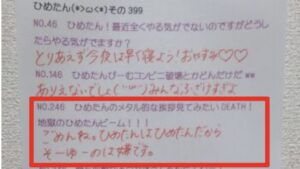 ひめたん(*>ω<*)その399
NO.46 ひめたん！最近全くやる気がでないのですがどうし
たらやる気でますか？
とりあえず今夜は早く寝よう！おやすみ♡♡
NO.146 ひめたんびーむコンビニ破壊とかどんだけだww
ありえないでしょ みんなふざけすぎよ
NO.246 ひめたんのメタル的な挨拶見てみたいDEATH！
地獄のひめたんビーム！！！
ごめんね。ひめたんはひめたんだから
そーゆーのは嫌です。